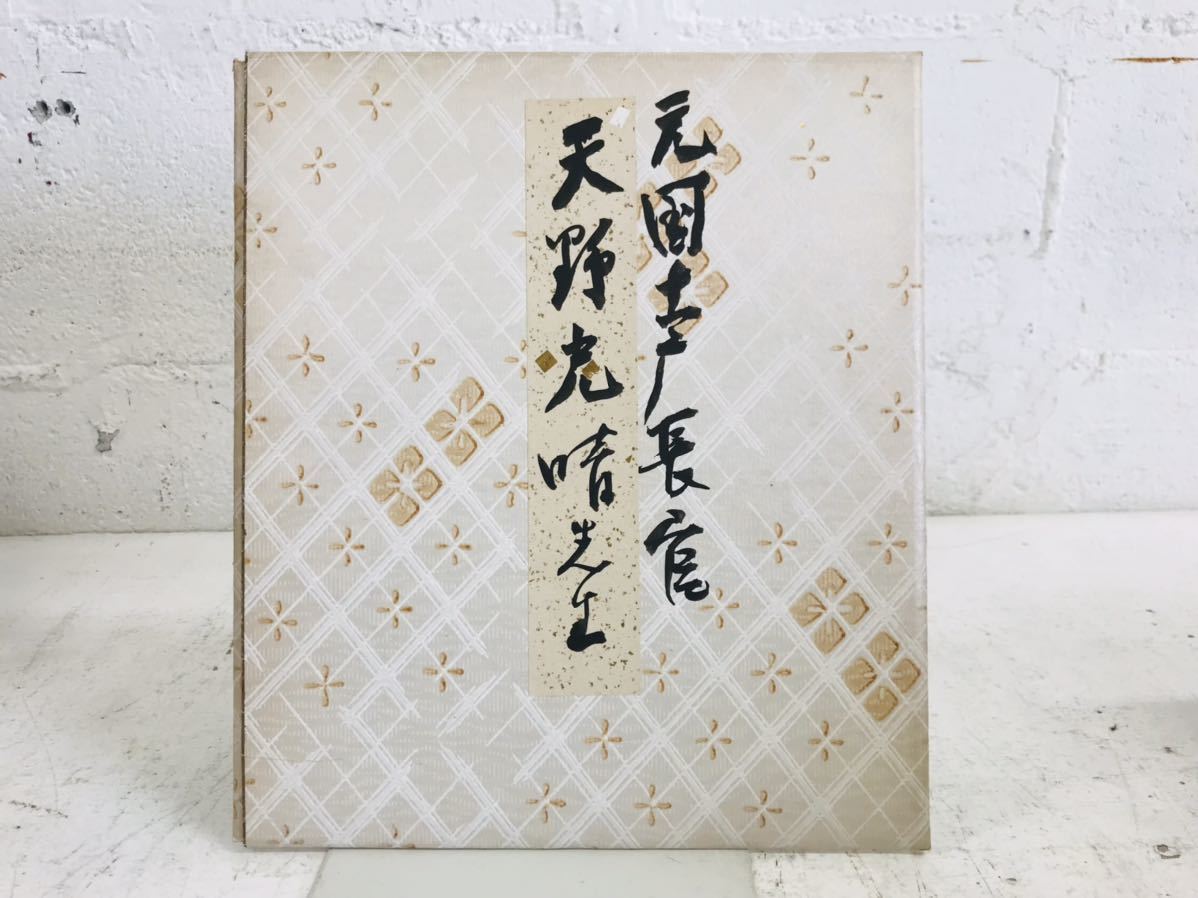 元国土庁長官
天野光晴先生